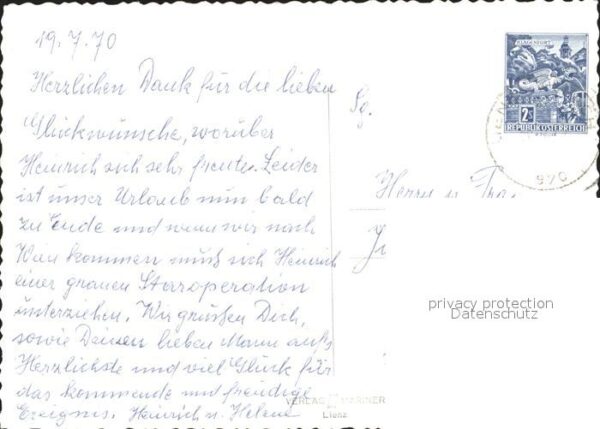 19.7.70
Herzlichen Dank für die lieben
Glückwünsche, worüber
Heinrich sich sehr freute. Leider
ist unser Urlaub nun bald
zu Ende und wenn wir nach
Wien kommen muß sich Heinrich
einer grauen Staroperation
unterziehen. Wir grüßen Dich,
sowie Deinen lieben Mann aufs
Herzlichste und viel Glück für
das kommende und freudige
Ereignis. Heinrich u. Helene
KLAGENFURT
2S
REPUBLIK ÖSTERREICH
Herrn u.
privacy protection
Datenschutz
VERLAG MARINER
Lienz